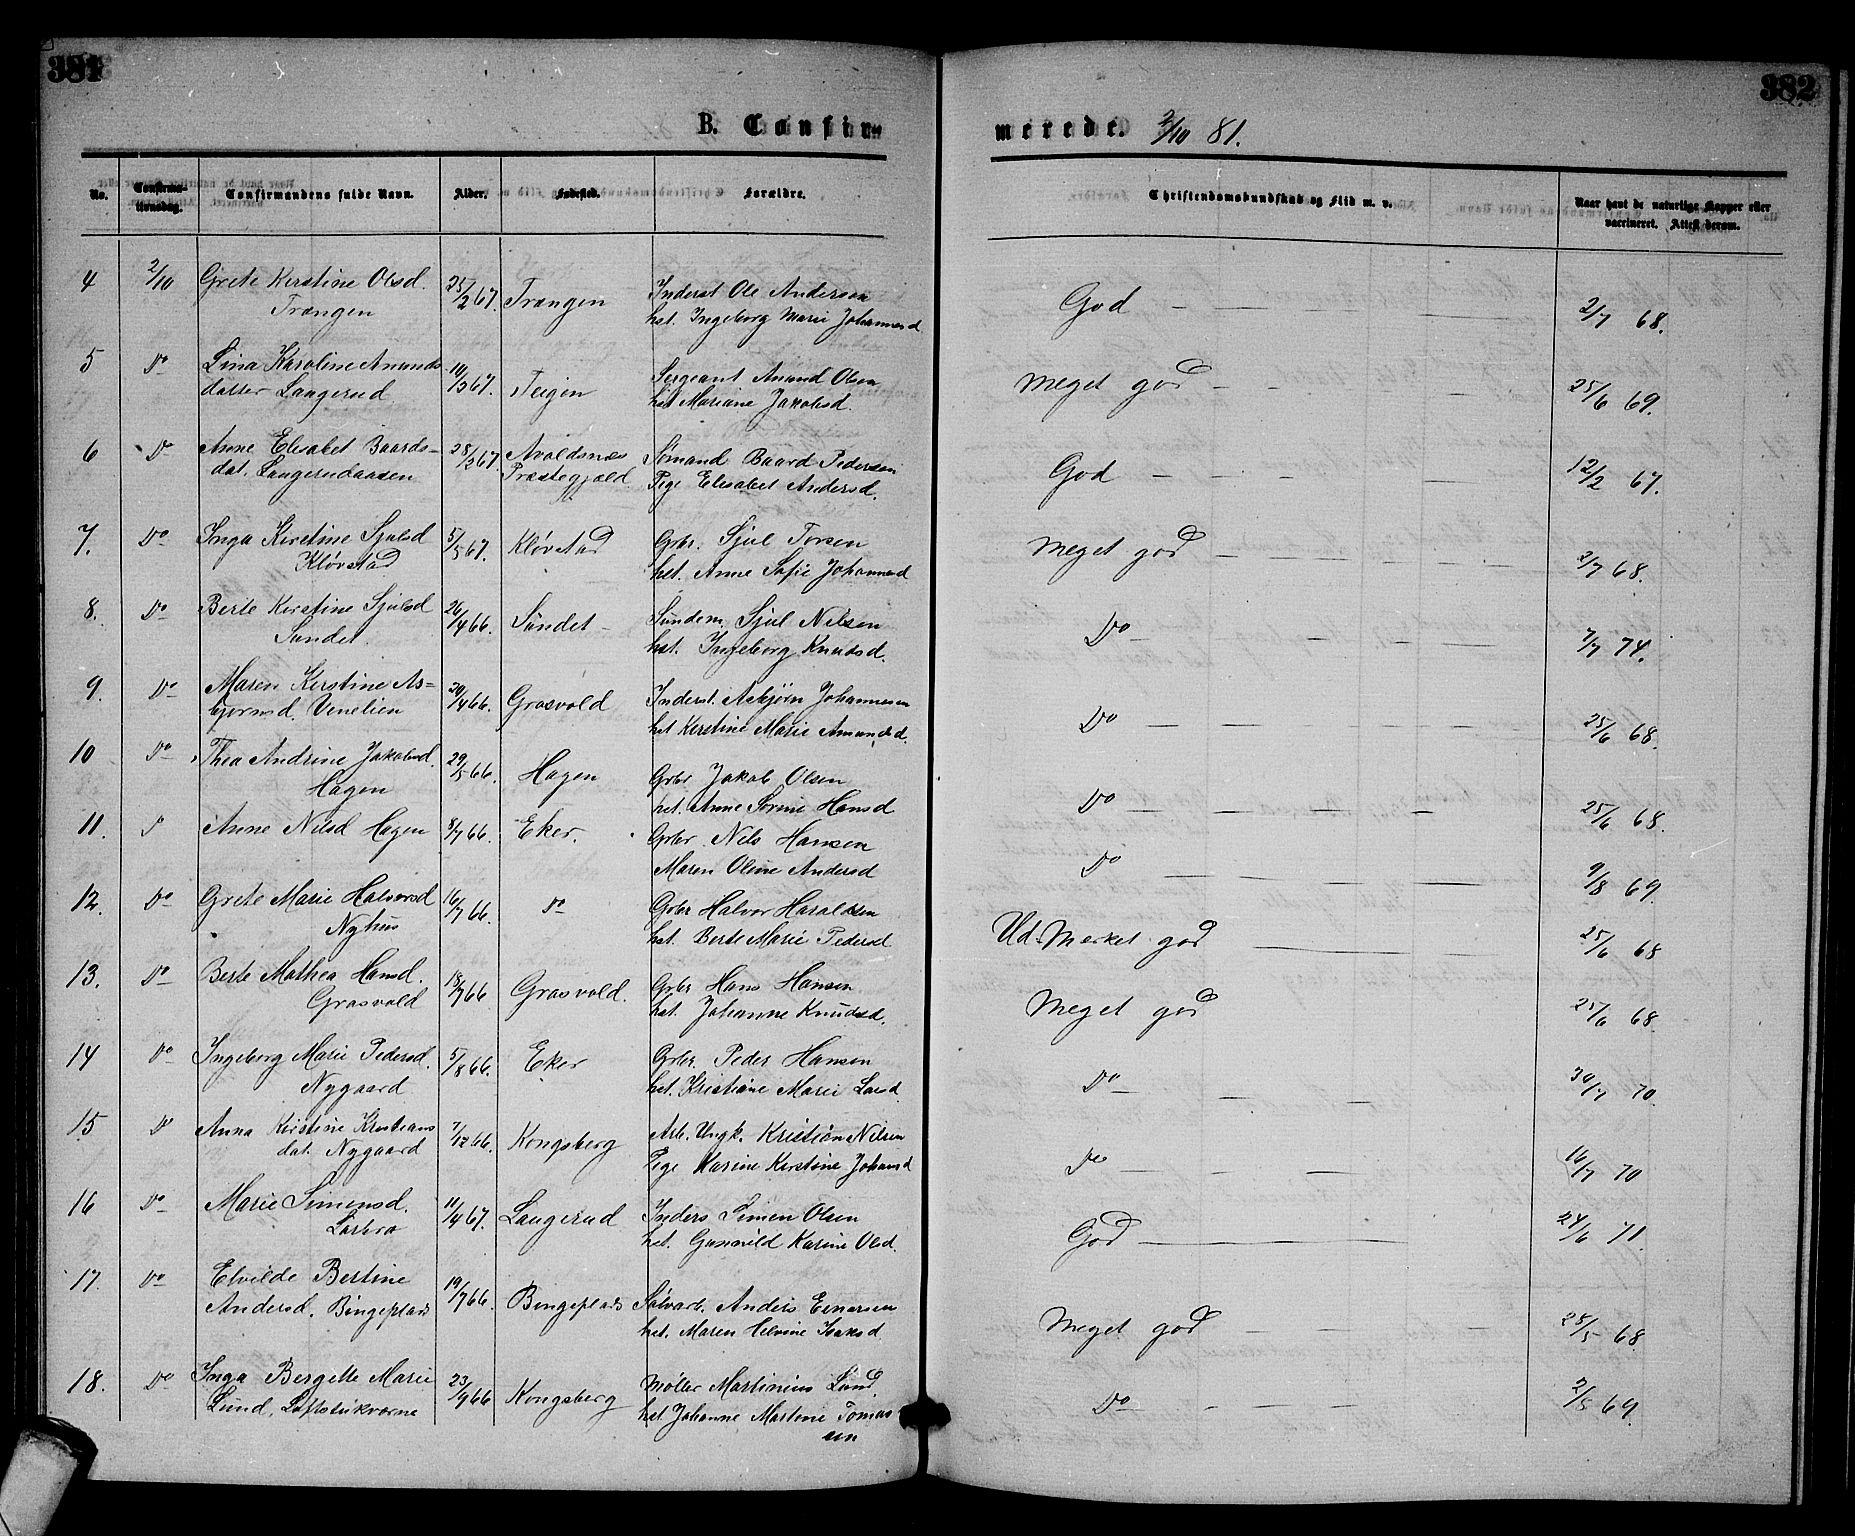 381
382
B. Confirmerede. 2/10 81.
No. Confirmationsdag. Confirmandens fulde Navn. Alder. Fødested. Forældre. Christendomskundskab og Flid m. v. Naar havt de naturlige Kopper eller vaccineret. Attest derom.
4 2/10 Grete Kirstine Olsd. 25/2 67. Trangen Inderst Ole Andersen God 2/7 68.
Trangen hst. Ingeborg Marie Johannesd
5 Do Lina Karoline Anunds 10/3 67. Teigen Sergeant Anund Olsen Meget god 25/6 69.
datter Langerud hst Mariane Jakobsd.
6 Do Anne Elisabet Baards- 28/2 67. Avaldsnæs Sømand Baard Pedersen God 12/2 67.
dat. Langerudaasen Præstegjæld. Pige Elisabet Andersd.
7. Do Inga Kirstine Sjulsd 5/5 67. Kløvstad Grbr. Sjul Torsen Meget god 2/7 68.
Kløvstad hst. Anne Sofie Johannesd
8. Do Berte Kirstine Sjulsd 26/4 66. Sundet Sundem. Sjul Nilsen Do 7/7 74.
Sundet. hst. Ingeborg Knudsd.
9. Do Maren Kirstine As- 20/4 66. Grosvold Inderst. Asbjørn Johannesen Do 25/6 68.
bjørnsd. Venelien hst Kerstine Marie Amundsd.
10 Do Thea Andrine Jakobsd. 29/5 66. Hagen Grbr Jakob Olsen Do 25/6 68.
Hagen hst. Anne Sørine Hansd
11. Anne Nilsd Hagen 8/7 66. Eker. Grbr Nils Hansen Do 9/8 69.
Maren Oline Andersd
12. Do Grete Marie Halvorsd 16/7 66. Do Grbr Halvor Haraldsen Ud-Merket god 25/6 68
Nyhus hst. Berte Marie Pedersd
13. Do Berte Mathea Hansd. 18/7 66 Grosvold. Grbr Hans Hansen Meget god 25/6 68
Grosvold hst. Johanne Knudsd.
14 Do Ingeborg Marie Pedersd. 5/8 66. Eker Grbr. Peder Hansen Do 30/7 70.
Nygaard hst. Kristiane Marie Larsd
15 Do Anna Kirstine Kristians 7/12 66. Kongsberg Arb. Ungk. Kristian Nilsen Do 16/7 70
dat. Nygaard Pige Karine Kirstine Johansd
16 Do Marie Simensd. 11/4 67. Langerud Inders Simen Olsen God 24/6 71.
Larbro hst. Gunnild Karine Olsd.
17. Do Elvilde Bertine 19/7 66. Bingeplads Sølvarb. Anders Einarsen Meget god 25/5 68.
Andersd. Bingeplads hst. Maren Helvine Isaksd
18. Do Inga Bergette Marie 23/9 66 Kongsberg Møller Martinius Lund. Do 2/5 69.
Lund, Loftstukværne hst Johanne Martine Tomas
sen